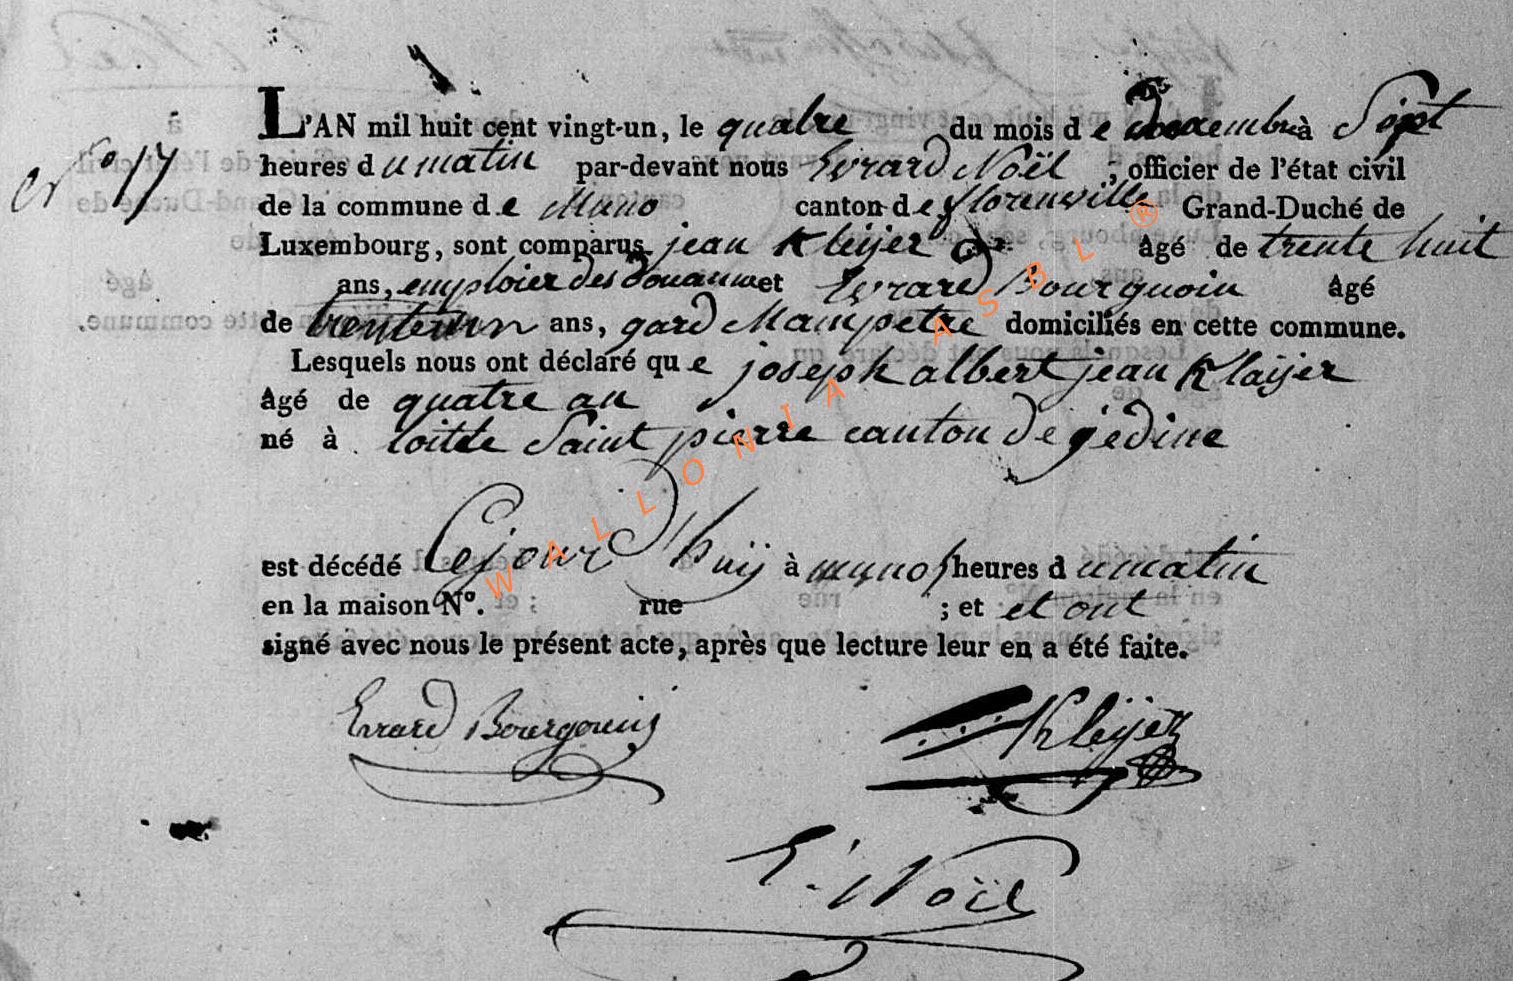 N° 17
L'AN mil huit cent vingt-un, le quatre du mois de decembre à Sept
heures du matin par-devant nous Evrard Noël ; officier de l'état civil
de la commune de Muno canton de florenville Grand-Duché de
Luxembourg, sont comparus jean Kleijer âgé de trente huit
ans, emploier des douanne et Evrard Bourguoin âgé
de ans, gard Mampetre domiciliés en cette commune.
Lesquels nous ont déclaré que joseph albert jean Klaijer
âgé de quatre an
né à loitte Saint pierre canton de gédine
est décédé Cejourd'huij à heures du matin
en la maison N°. rue ; et et ont
signé avec nous le présent acte, après que lecture leur en a été faite.
Evrard Bourgouin Kleijer
E. Noël
WALLONIA ASBL ®